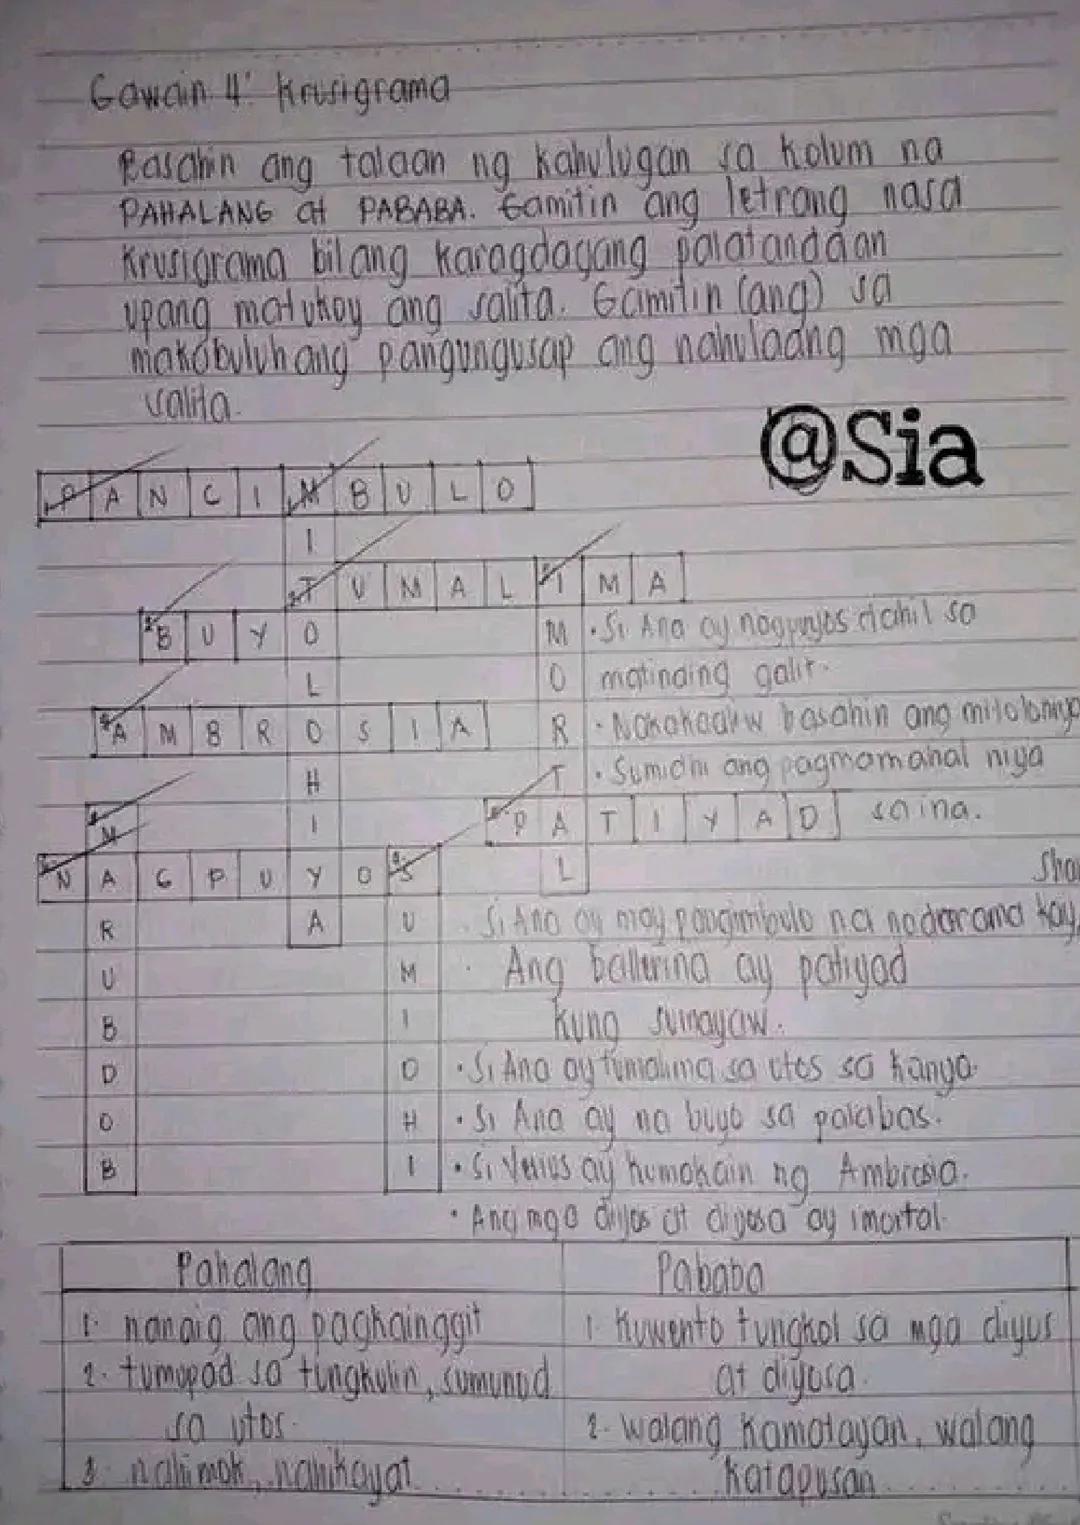 Gawain 4: Krusigrama
Basahin ang talaan ng kahulugan sa kolum na
PAHALANG at PABABA. Gamitin ang letrang nasa
krusigrama bilang karagdagang palatandaan
upang matukoy ang salita. Gamitin (ang) sa
makabuluhang pangungusap ang nahulaang mga
salita.
@Sia
P A N G I M B U L O
I
T U M A L I M A
B U Y O
M • Si Ana ay nagpuyos dahil sa
L
O matinding galit.
A M B R O S I A
R • Nakakaaliw basahin ang mitolohiya
H
T • Sumidhi ang pagmamahal niya
N
I
P A T I Y A D sa ina.
N A G P U Y O S
L
R
A
U • Si Ana ay may pangimbulo na nadarama kay
U
M • Ang ballerina ay patiyad
B
I kung sumayaw.
D
D • Si Ana ay tumalima sa utos sa kanya.
O
H • Si Ana ay na buyo sa palabas.
B
I • Si Venus ay kumakain ng Ambrosia.
• Ang mga diyos at diyosa ay imortal.
Pahalang
Pababa
1. nanaig ang pagkainggit
1. Kuwento tungkol sa mga diyus
2. tumupad sa tungkulin, sumunod
at diyosa.
sa utos.
2. walang kamatayan, walang
3. nahimok, nahikayat
katapusan